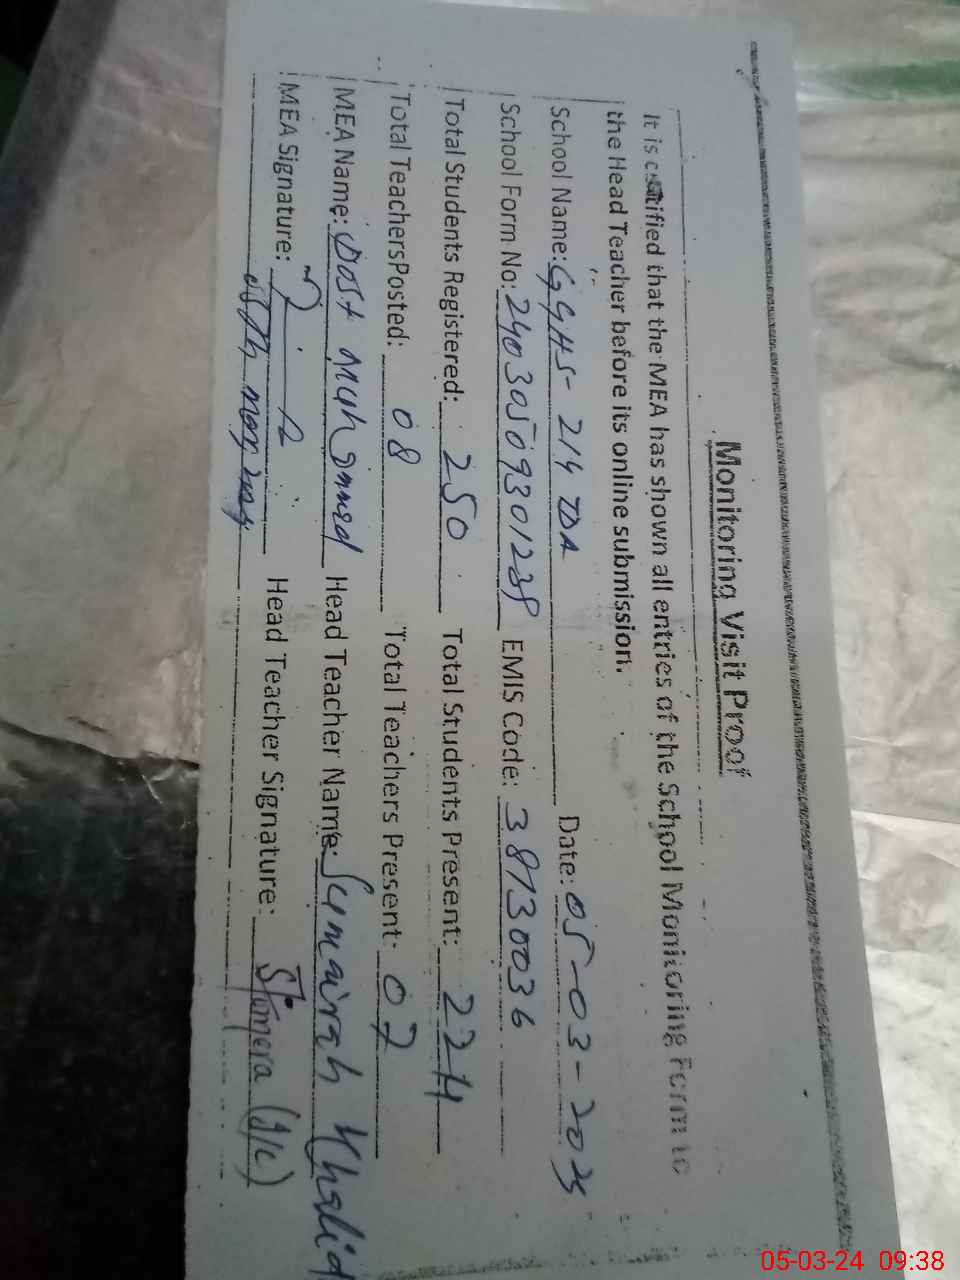 Monitoring Visit Proof
It is certified that the MEA has shown all entries of the School Monitoring Form to
the Head Teacher before its online submission.
School Name: GGHS- 214 TDA Date: 05-03-2025
School Form No: 2403050930123 EMIS Code: 38130036
Total Students Registered: 250 Total Students Present: 224
Total TeachersPosted: 08 Total Teachers Present: 07
MEA Name: Dost Muhammad Head Teacher Name: Sumairah Khalid
MEA Signature: Head Teacher Signature: Sumera (A/C)
05-03-24 09:38